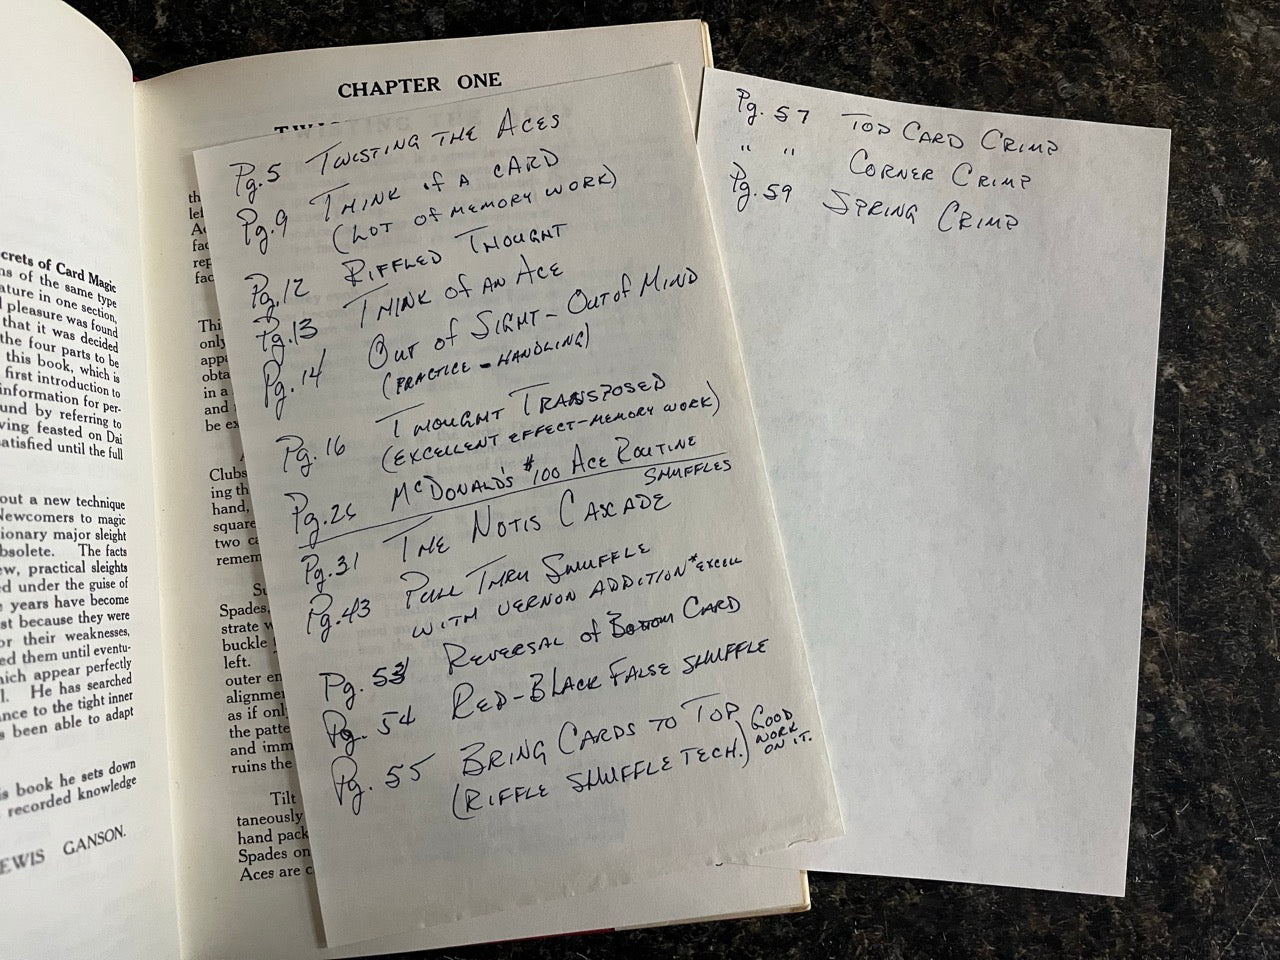 crets of Card Magic
ns of the same type
ature in one section,
l pleasure was found
that it was decided
the four parts to be
this book, which is
first introduction to
information for per-
und by referring to
ving feasted on Dai
atisfied until the full
out a new technique
Newcomers to magic
ionary major sleight
bsolete. The facts
ew, practical sleights
ed under the guise of
e years have become
st because they were
or their weaknesses,
ed them until eventu-
hich appear perfectly
l. He has searched
nce to the tight inner
s been able to adapt
is book he sets down
recorded knowledge
EWIS GANSON.
CHAPTER ONE
TWISTING THE ACES
th
lef
Ac
fac
rep
fac
Thi
only
appa
obta
in a
and
be ex
A
Clubs
ing th
hand,
square
two ca
remem
Su
Spades.
strate w
buckle
left.
outer en
alignmen
as if only
the patte
and imm
ruins the
Tilt
taneously
hand pack
Spades on
Aces are c
Pg. 5 TWISTING THE ACES
Pg. 9 THINK of A CARD
(LOT OF MEMORY WORK)
Pg. 12 RIFFLED THOUGHT
Pg. 13 THINK of AN ACE
Pg. 14 OUT of SIGHT - OUT of MIND
(PRACTICE - HANDLING)
Pg. 16 THOUGHT TRANSPOSED
(EXCELLENT EFFECT - MEMORY WORK)
Pg. 26 McDONALD'S $100 ACE ROUTINE
SHUFFLES
Pg. 31 THE NOTIS CASCADE
Pg. 43 PULL THRU SHUFFLE
WITH VERNON ADDITION *EXCELL
Pg. 53 REVERSAL of BOTTOM CARD
Pg. 54 RED-BLACK FALSE SHUFFLE
Pg. 55 BRING CARDS TO TOP
(RIFFLE SHUFFLE TECH.) GOOD WORK ON IT.
Pg. 57 TOP CARD CRIMP
" " CORNER CRIMP
Pg. 59 SPRING CRIMP